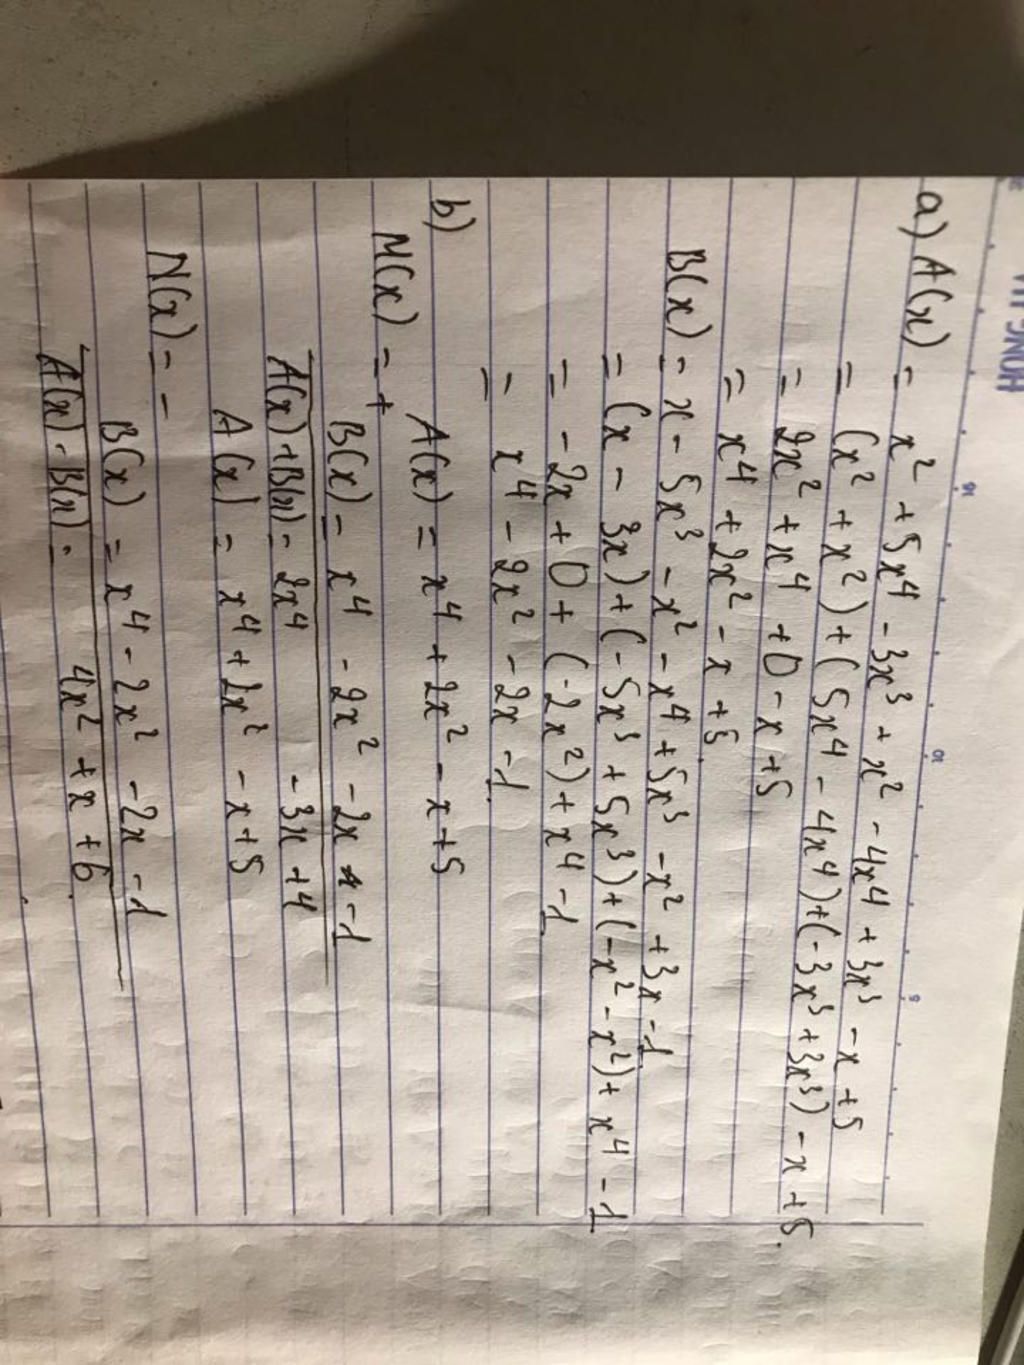 a) A(x) = x² + 5x⁴ - 3x³ + x² - 4x⁴ + 3x³ - x + 5
= (x² + x²) + (5x⁴ - 4x⁴) + (-3x³ + 3x³) - x + 5.
= 2x² + x⁴ + 0 - x + 5
= x⁴ + 2x² - x + 5.
B(x) = x - 5x³ - x² - x⁴ + 5x³ - x² + 3x - 1
= (x - 3x) + (-5x³ + 5x³) + (-x² - x²) + x⁴ - 1
= -2x + 0 + (-2x²) + x⁴ - 1
= x⁴ - 2x² - 2x - 1.
b)
A(x) = x⁴ + 2x² - x + 5
M(x) = +
B(x) = x⁴ - 2x² - 2x - 1
A(x) + B(x) = 2x⁴ - 3x + 4
A(x) = x⁴ + 2x² - x + 5
N(x) = -
B(x) = x⁴ - 2x² - 2x - 1
A(x) - B(x) = 4x² + x + 6.